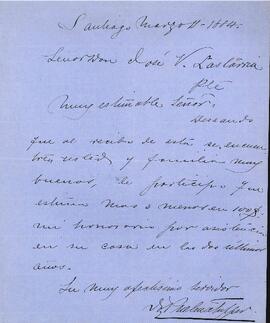 Santiago Marzo 11-1884.
Señor Don José V. Lastárria
Pte
Muy estimable Señor:
Deseando
que al recibo de esta se encuen
tren usted y familia muy
buenos, le participo que
estimo mas o menos en 100$.
mi honorario por asistencia
en su casa en los dos últimos
años.
Su muy afectisimo servidor
Dr